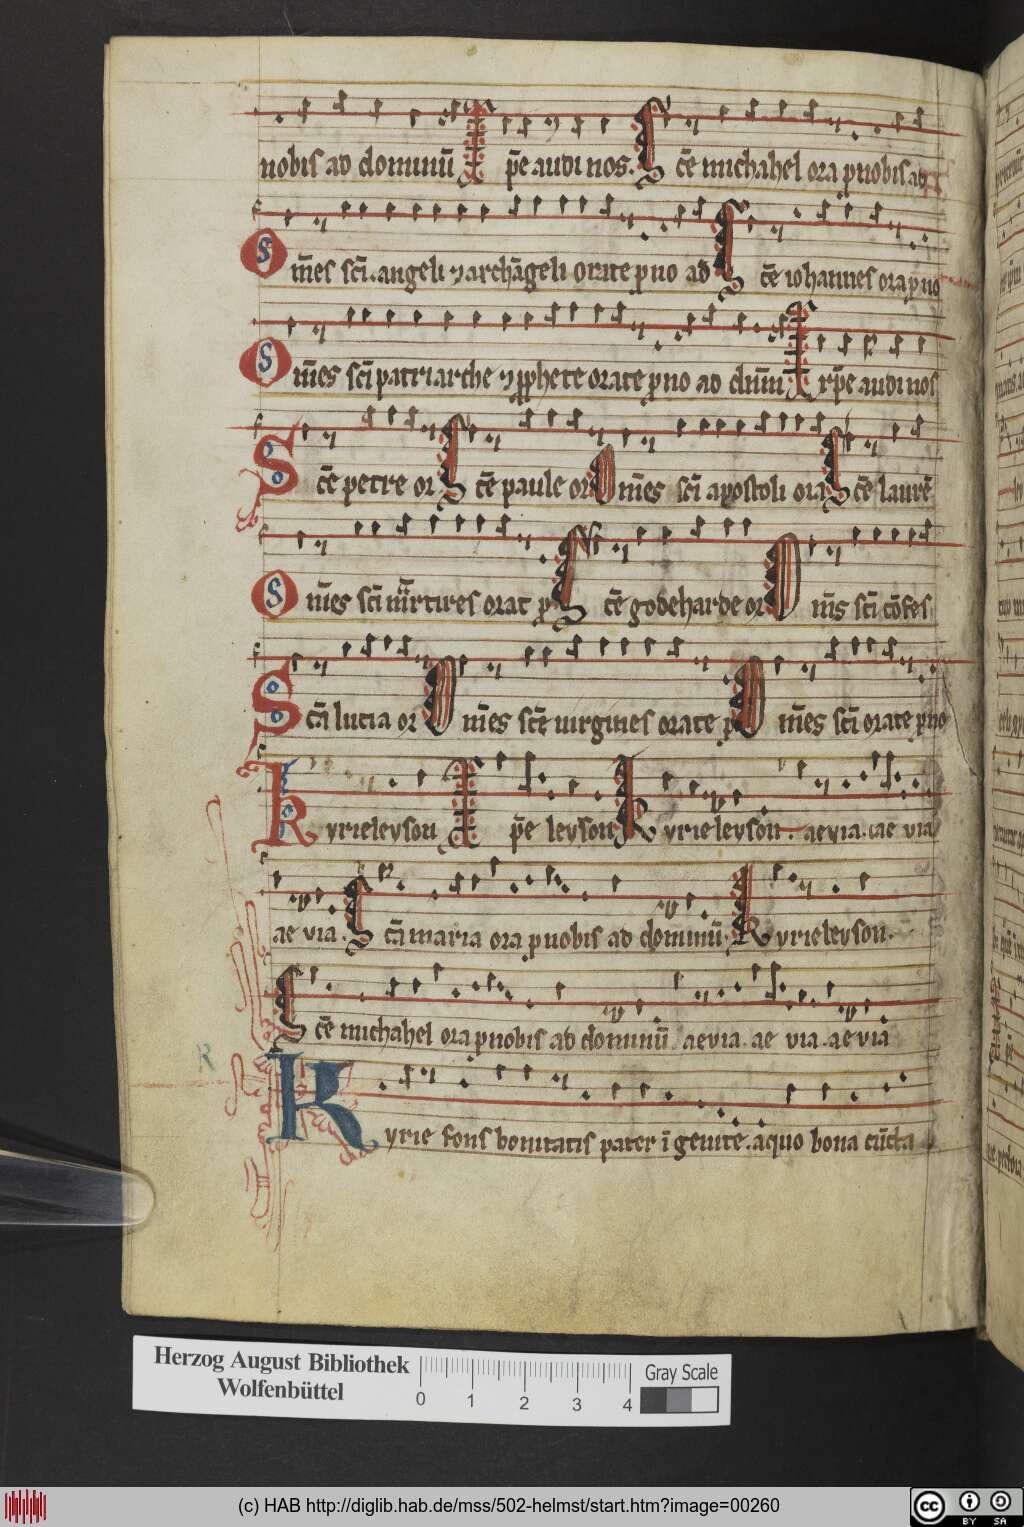 nobis ad dominū X p̄e audi nos. S cē michahel ora p nobis ad
O m̄es scī angeli ⁊ archāgeli orate p no ad S cē iohannes ora p no
O m̄es scī patriarche ⁊ pphete orate p no ad dnm̄ X rp̄e audi nos
S cē petre or S cē paule or O m̄es scī apostoli ora S cē laurē
O m̄es scī martires orat p S cē godeharde or O m̄s scī cōfes
S cā lucia or O m̄es scē uirgines orate p O m̄es scī orate p no
K yrieleyson X p̄e leyson K yrieleyson. aevia. ae via
ae via. S cā maria ora p nobis ad dominū. K yrieleyson.
S cē michahel ora p nobis ad dominū aevia. ae via. ae via
K yrie fons bonitatis pater ī genite. a quo bona cūcta
R
Herzog August Bibliothek
Wolfenbüttel
0 1 2 3 4
Gray Scale
(c) HAB http://diglib.hab.de/mss/502-helmst/start.htm?image=00260
cc BY SA